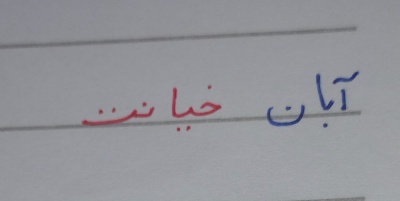 آبان خیانت